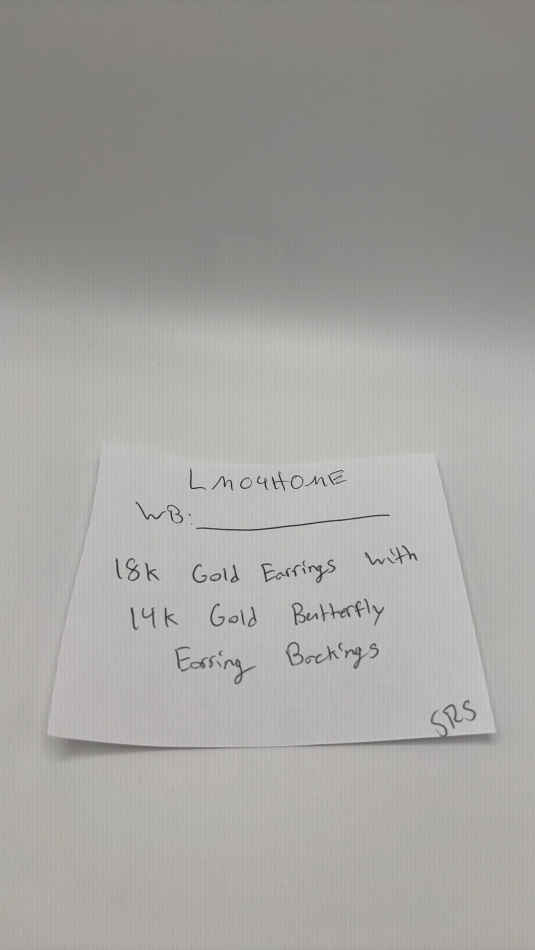 LMO4HOME
WB:
18k Gold Earrings with
14k Gold Butterfly
Earring Backings
SRS